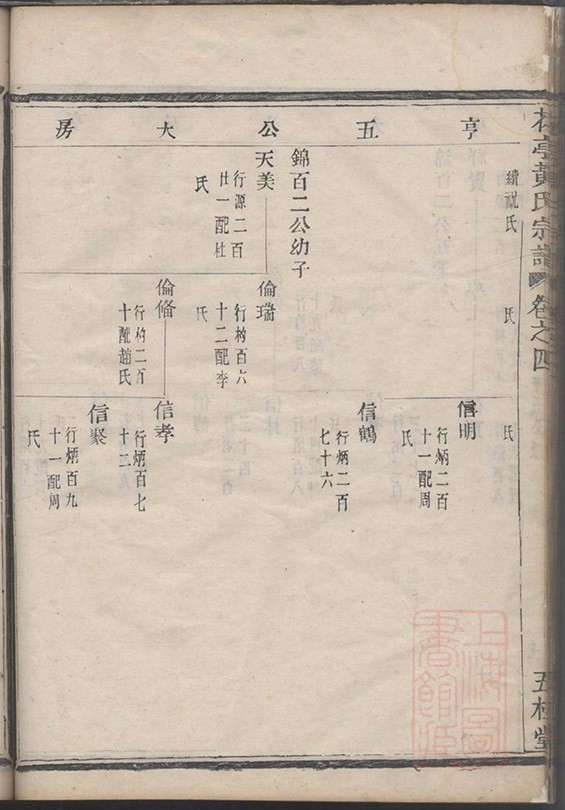 亨五公大房
黃氏宗譜
卷之四
五桂堂
續祝氏
氏
氏
錦百二公幼子
天美
行源二百
廿一配杜
氏
倫瑞
行杓百六
十二配李
氏
倫脩
行杓二百
十配趙氏
信明
行炳二百
十一配周
氏
信鶴
行炳二百
七十六
信孝
行炳百七
十二九
信聚
行炳百九
十一配周
氏
上海圖
書館藏